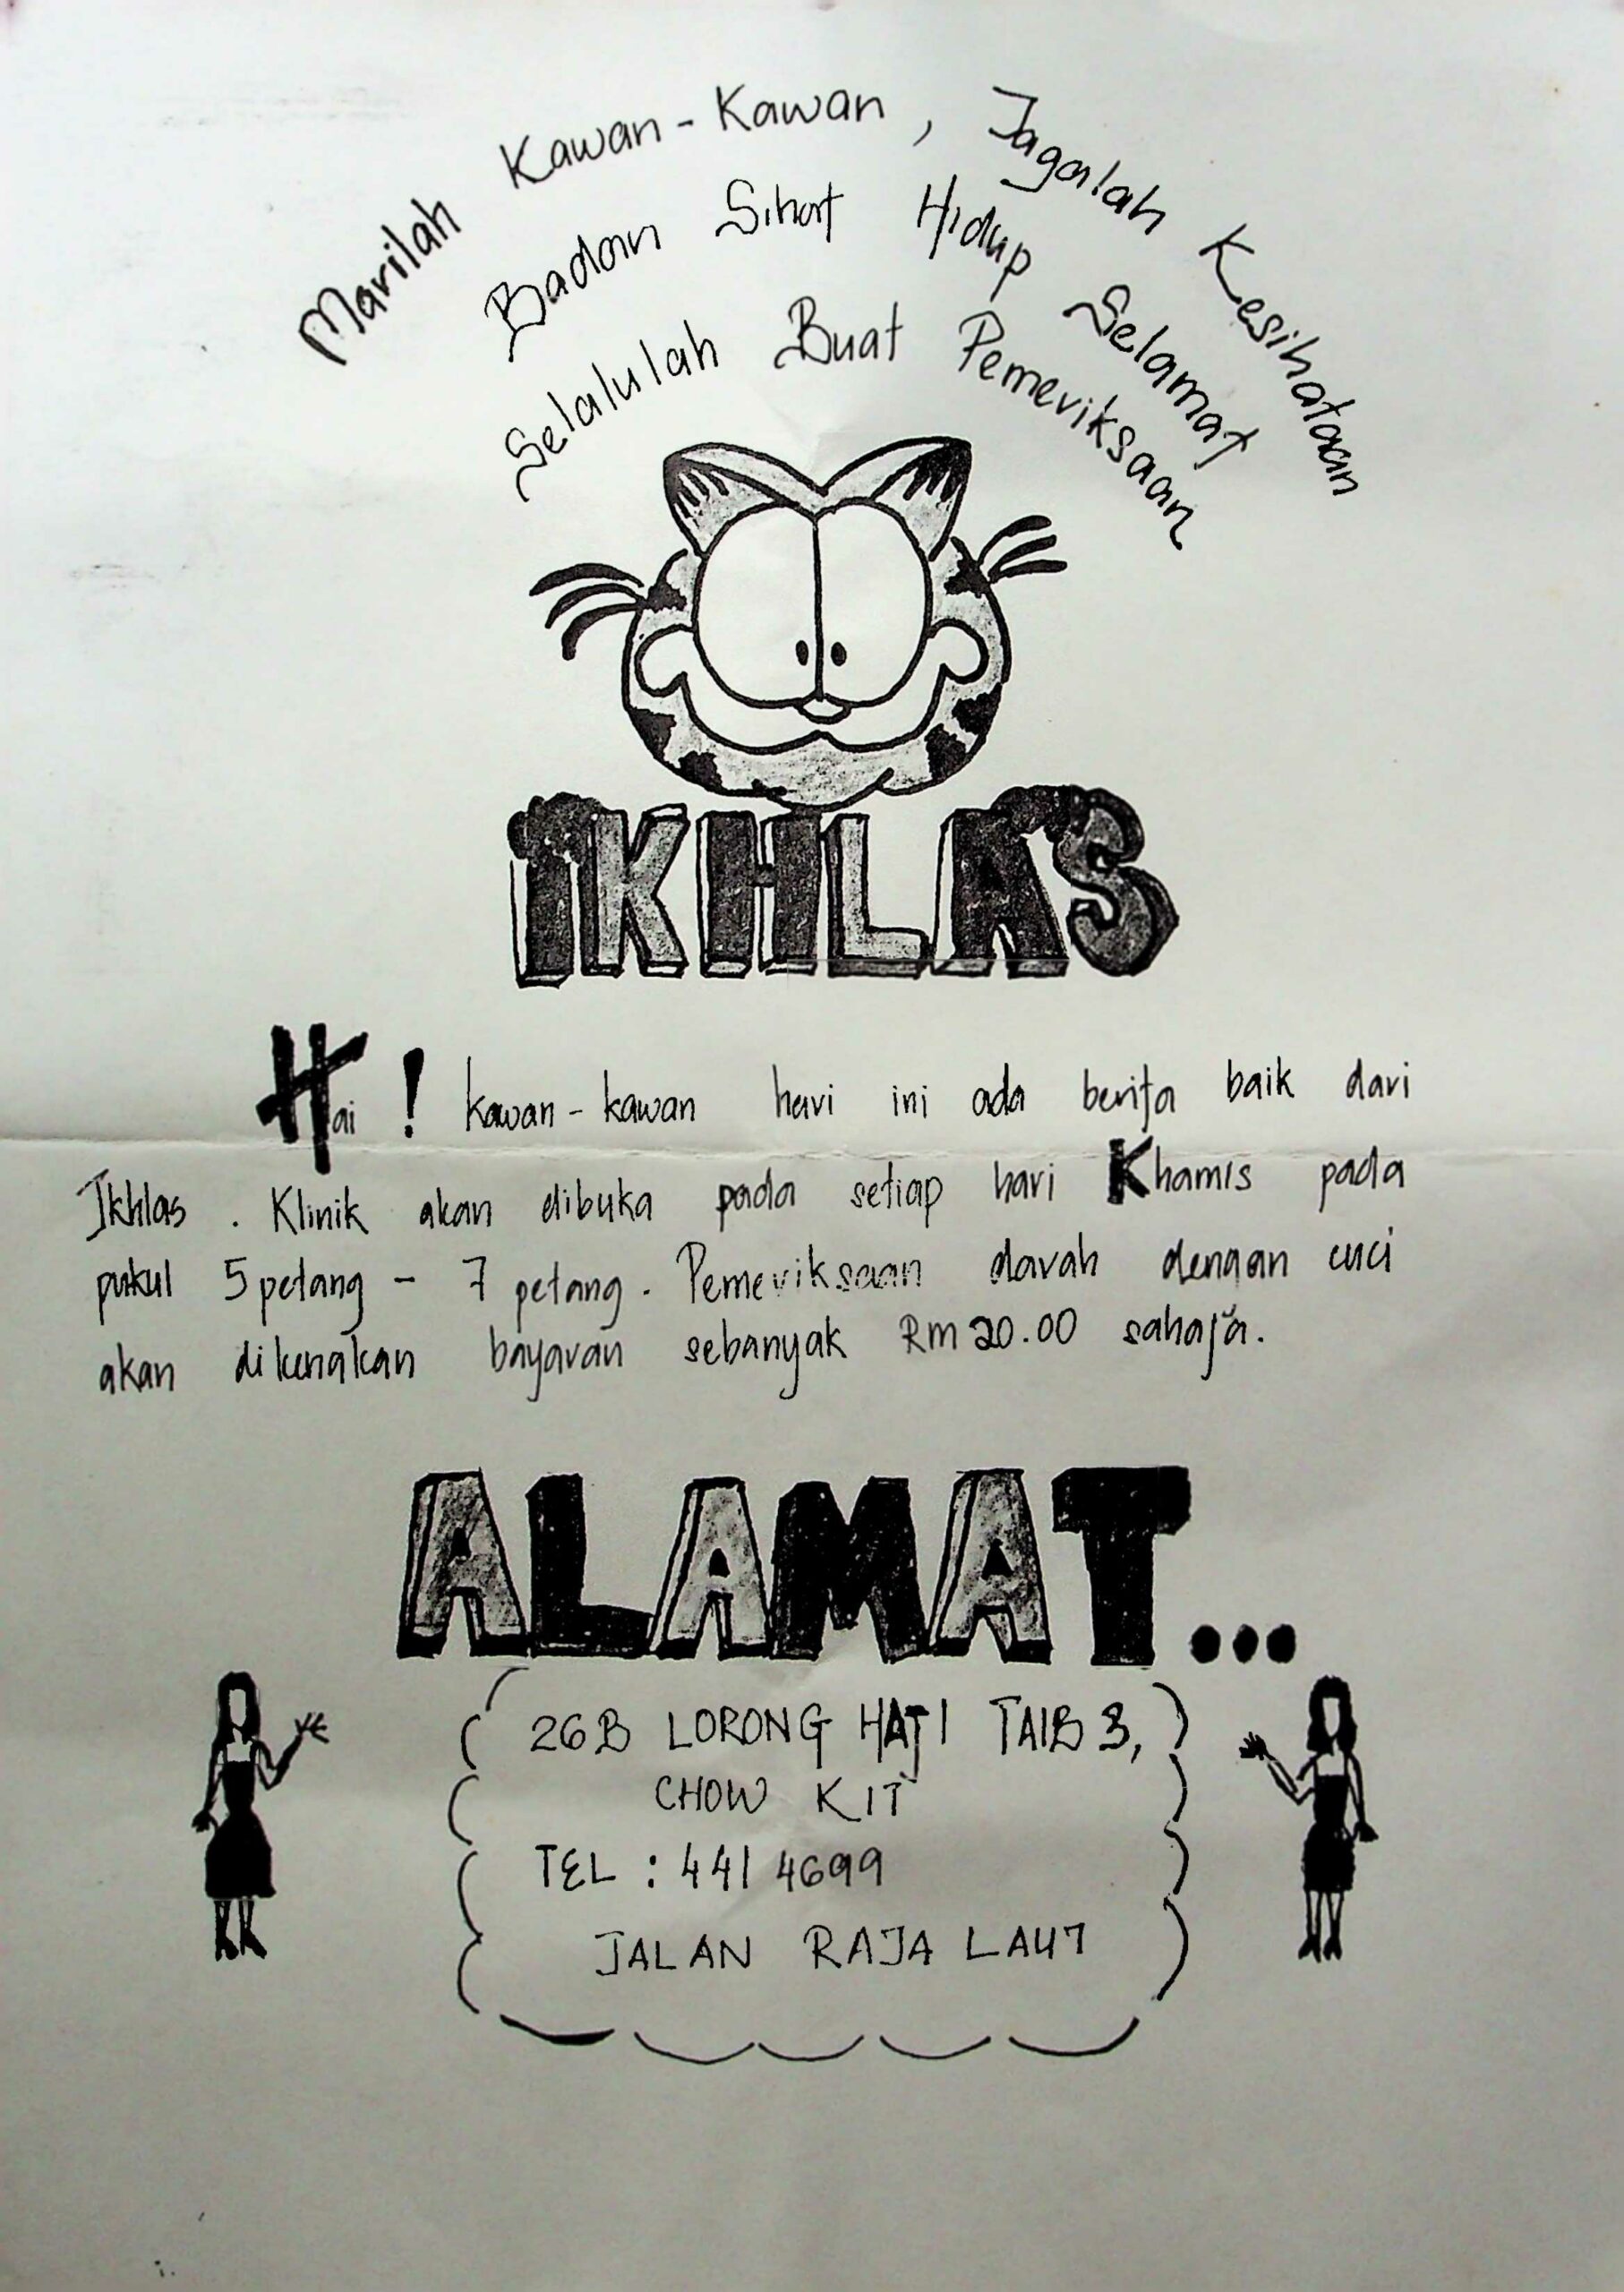 Marilah Kawan-Kawan, Jagalah Kesihataan
Badan Sihat Hidup Selamat
Selalulah Buat Pemeriksaan
IKHLAS
Hai! kawan-kawan hari ini ada berita baik dari
Ikhlas. Klinik akan dibuka pada setiap hari Khamis pada
pukul 5 petang - 7 petang. Pemeriksaan darah dengan cuci
akan dikenakan bayaran sebanyak RM 20.00 sahaja.
ALAMAT...
26B LORONG HAJI TAIB 3,
CHOW KIT
TEL : 441 4699
JALAN RAJA LAUT